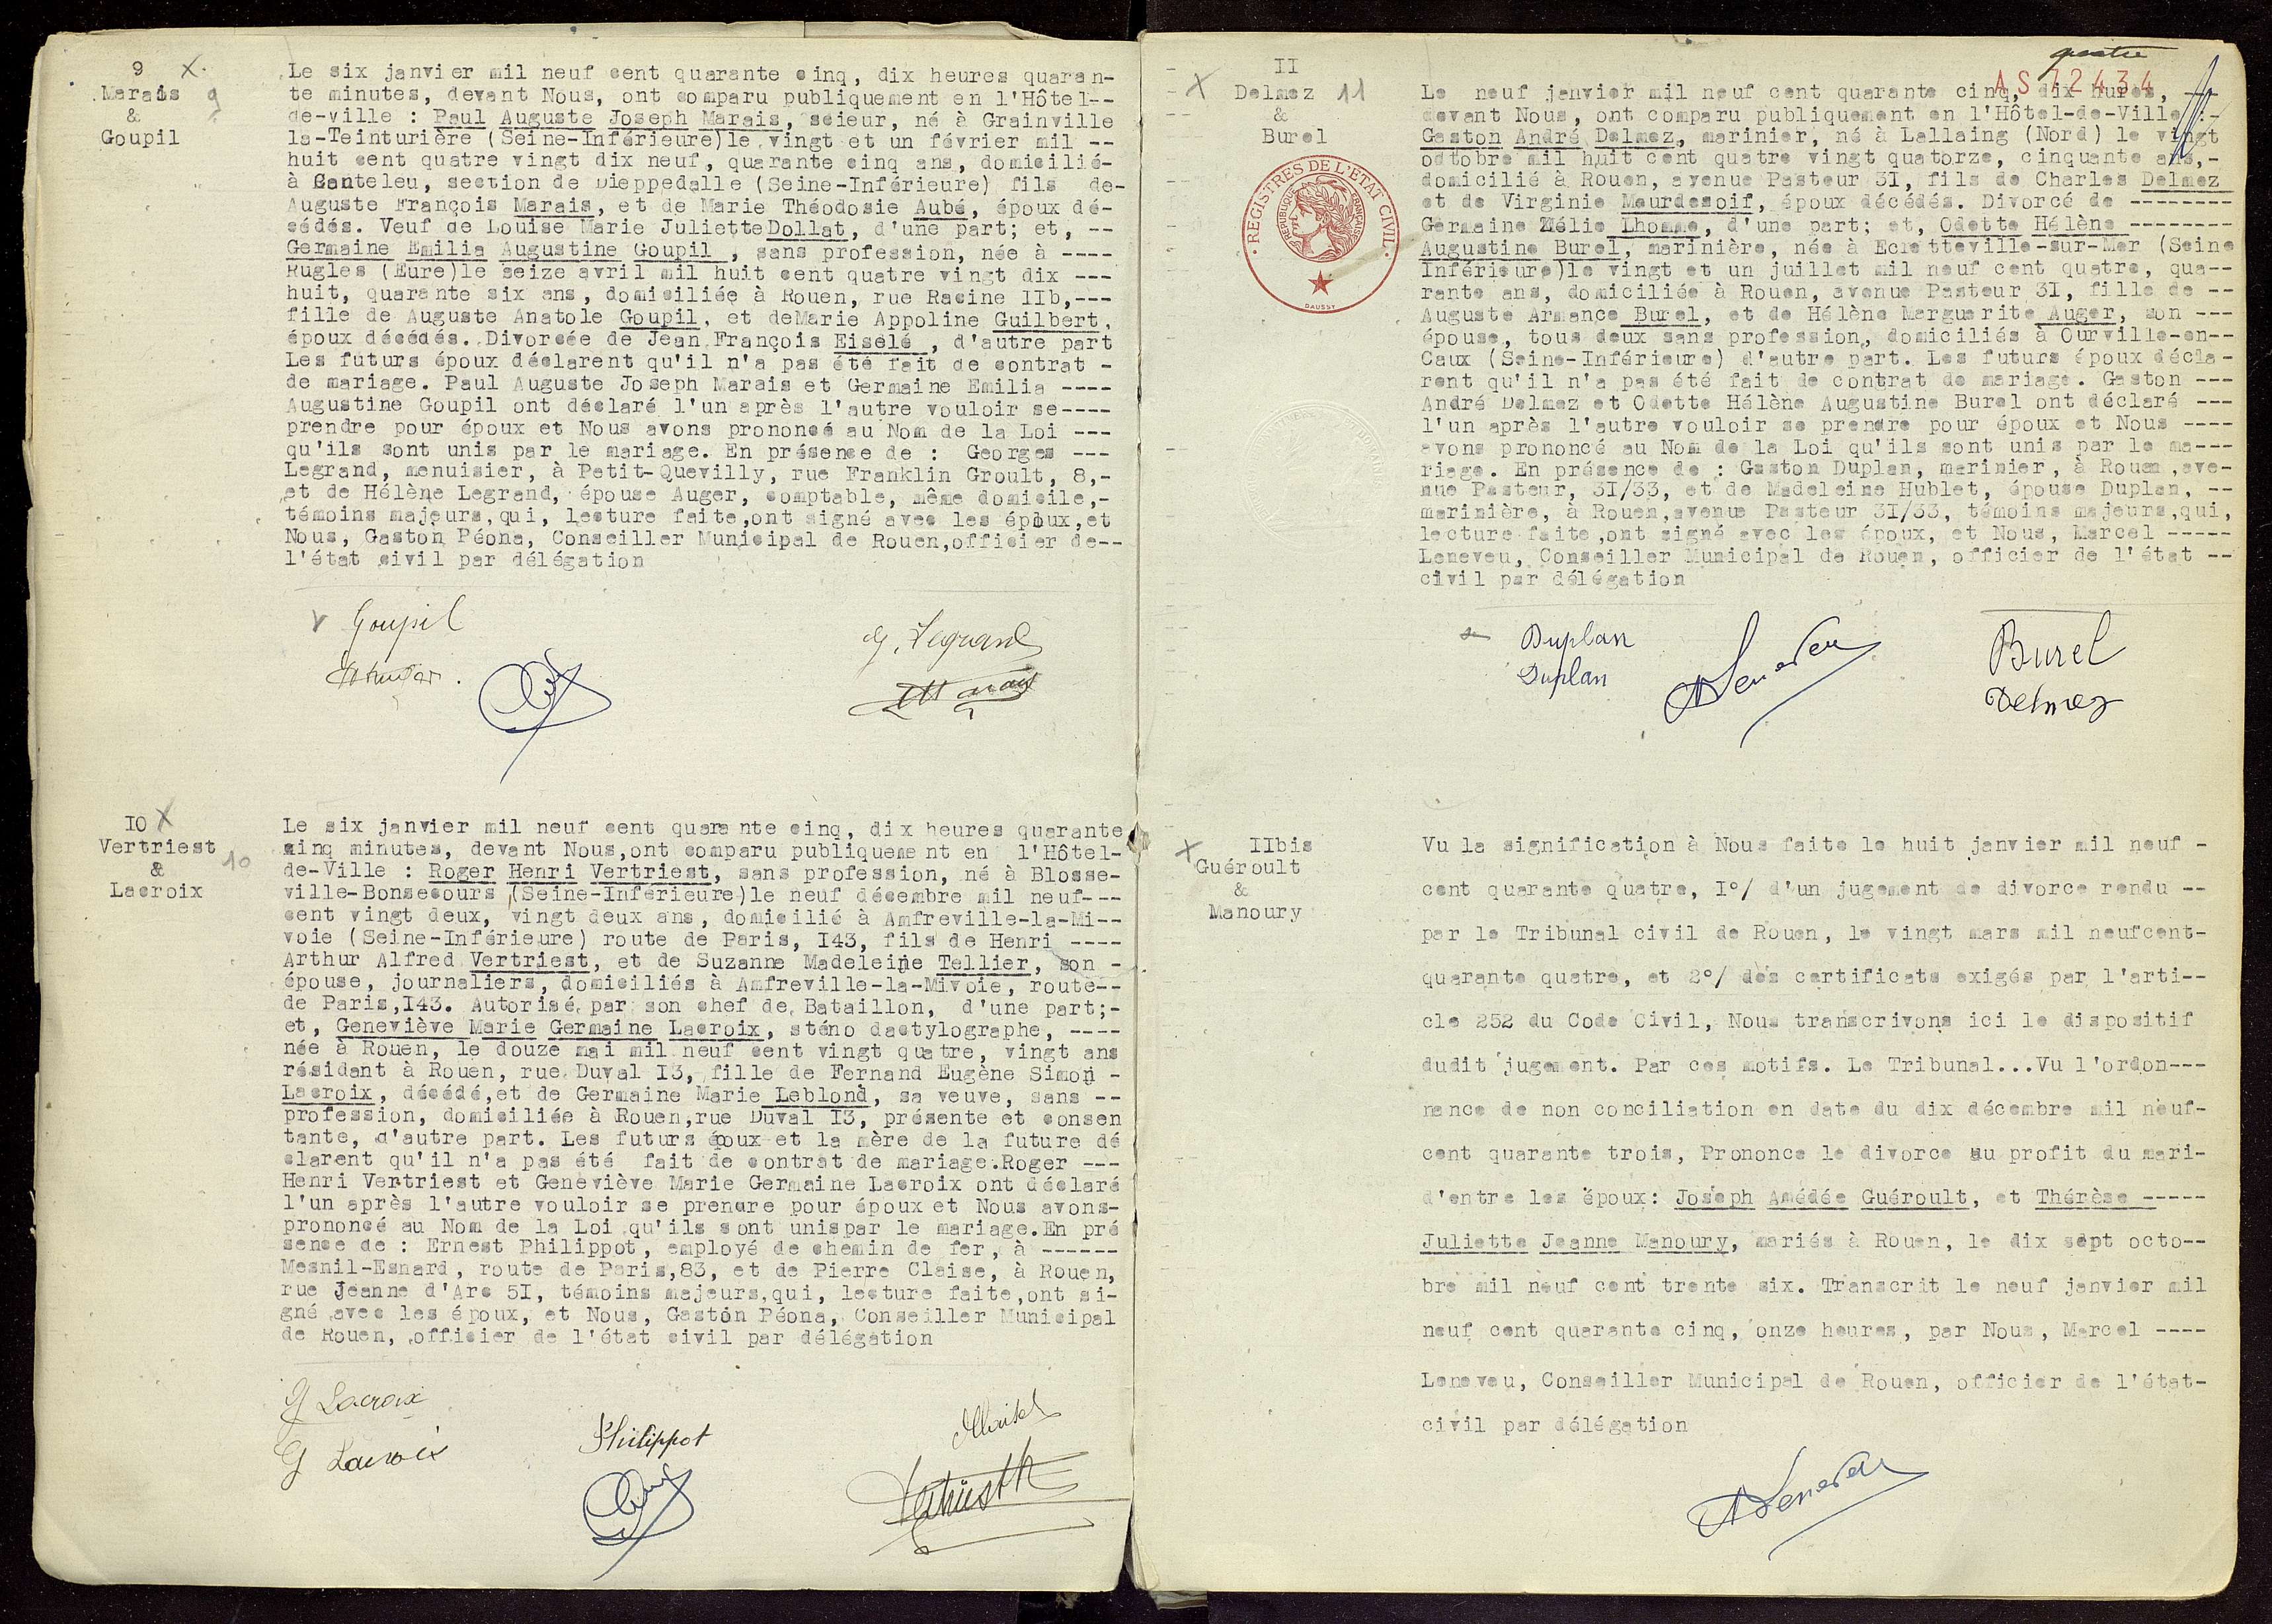 9 X.
Marais 9
&
Goupil
Le six janvier mil neuf cent quarante cinq, dix heures quaran-
te minutes, devant Nous, ont comparu publiquement en l'Hôtel--
de-ville : Paul Auguste Joseph Marais, scieur, né à Grainville
la-Teinturière (Seine-Inférieure)le vingt et un février mil --
huit cent quatre vingt dix neuf, quarante cinq ans, domicilié-
à Canteleu, section de Dieppedalle (Seine-Inférieure) fils de-
Auguste François Marais, et de Marie Théodosie Aubé, époux dé-
cédés. Veuf de Louise Marie Juliette Dollat, d'une part; et, --
Germaine Emilia Augustine Goupil , sans profession, née à ----
Rugles (Eure)le seize avril mil huit cent quatre vingt dix ---
huit, quarante six ans, domiciliée à Rouen, rue Racine IIb,---
fille de Auguste Anatole Goupil, et deMarie Appoline Guilbert,
époux décédés. Divorcée de Jean François Eiselé , d'autre part
Les futurs époux déclarent qu'il n'a pas été fait de contrat -
de mariage. Paul Auguste Joseph Marais et Germaine Emilia ----
Augustine Goupil ont déclaré l'un après l'autre vouloir se----
prendre pour époux et Nous avons prononcé au Nom de la Loi ---
qu'ils sont unis par le mariage. En présence de : Georges ---
Legrand, menuisier, à Petit-Quevilly, rue Franklin Groult, 8,-
et de Hélène Legrand, épouse Auger, comptable, même domicile,-
témoins majeurs,qui, lecture faite,ont signé avec les époux,et
Nous, Gaston Péona, Conseiller Municipal de Rouen,officier de--
l'état civil par délégation
Goupil
G. Legrand
Marais
IO X
Vertriest 10
&
Lacroix
Le six janvier mil neuf cent quarante cinq, dix heures quarante
cinq minutes, devant Nous,ont comparu publiquement en l'Hôtel-
de-Ville : Roger Henri Vertriest, sans profession, né à Blosse-
ville-Bonsecours (Seine-Inférieure)le neuf décembre mil neuf---
cent vingt deux, vingt deux ans, domicilié à Amfreville-la-Mi--
voie (Seine-Inférieure) route de Paris, I43, fils de Henri ----
Arthur Alfred Vertriest, et de Suzanne Madeleine Tellier, son -
épouse, journaliers, domiciliés à Amfreville-la-Mivoie, route--
de Paris,I43. Autorisé par son chef de Bataillon, d'une part;-
et, Geneviève Marie Germaine Lacroix, sténo dactylographe, ----
née à Rouen, le douze mai mil neuf cent vingt quatre, vingt ans
résidant à Rouen, rue Duval I3, fille de Fernand Eugène Simon -
Lacroix, décédé,et de Germaine Marie Leblond, sa veuve, sans --
profession, domiciliée à Rouen,rue Duval I3, présente et consen
tante, d'autre part. Les futurs époux et la mère de la future dé
clarent qu'il n'a pas été fait de contrat de mariage.Roger ---
Henri Vertriest et Geneviève Marie Germaine Lacroix ont déclaré
l'un après l'autre vouloir se prendre pour époux et Nous avons-
prononcé au Nom de la Loi qu'ils sont unispar le mariage.En pré
sence de : Ernest Philippot, employé de chemin de fer, à ------
Mesnil-Esnard, route de Paris,83, et de Pierre Claise, à Rouen,
rue Jeanne d'Arc 5I, témoins majeurs,qui, lecture faite,ont si-
gné avec les époux, et Nous, Gaston Péona, Conseiller Municipal
de Rouen, officier de l'état civil par délégation
G Lacroix
G Lacroix
Philippot
Vertriest R
quatre
AS 72434
II
X Delmez 11
&
Burel
REGISTRES DE L'ETAT CIVIL
REPUBLIQUE FRANÇAISE
DAUSSY
Le neuf janvier mil neuf cent quarante cinq, dix hures, --
devant Nous, ont comparu publiquement en l'Hôtel-de-Ville :-
Gaston André Delmez, marinier, né à Lallaing (Nord) le vingt
octobre mil huit cent quatre vingt quatorze, cinquante ans,-
domicilié à Rouen, avenue Pasteur 3I, fils de Charles Delmez
et de Virginie Meurdesoif, époux décédés. Divorcé de --------
Germaine Zélie Lhomme, d'une part; et, Odette Hélène --------
Augustine Burel, marinière, née à Ecretteville-sur-Mer (Seine
Inférieure)le vingt et un juillet mil neuf cent quatre, qua--
rante ans, domiciliée à Rouen, avenue Pasteur 3I, fille de --
Auguste Armance Burel, et de Hélène Marguerite Auger, son ---
épouse, tous deux sans profession, domiciliés à Ourville-en--
Caux (Seine-Inférieure) d'autre part. Les futurs époux décla-
rent qu'il n'a pas été fait de contrat de mariage. Gaston ---
André Delmez et Odette Hélène Augustine Burel ont déclaré ---
l'un après l'autre vouloir se prendre pour époux et Nous ----
avons prononcé au Nom de la Loi qu'ils sont unis par le ma---
riage. En présence de : Gaston Duplan, marinier, à Rouen,ave-
nue Pasteur, 3I/33, et de Madeleine Hublet, épouse Duplan, --
marinière, à Rouen,avenue Pasteur 3I/33, témoins majeurs,qui,
lecture faite,ont signé avec les époux, et Nous, Marcel -----
Leneveu, Conseiller Municipal de Rouen, officier de l'état --
civil par délégation
Duplan
Duplan
Leneveu
Burel
Delmez
X IIbis
Guéroult
&
Manoury
Vu la signification à Nous faite le huit janvier mil neuf -
cent quarante quatre, I°/ d'un jugement de divorce rendu --
par le Tribunal civil de Rouen, le vingt mars mil neufcent-
quarante quatre, et 2°/ des certificats exigés par l'arti--
cle 252 du Code Civil, Nous transcrivons ici le dispositif
dudit jugement. Par ces motifs. Le Tribunal...Vu l'ordon---
nance de non conciliation en date du dix décembre mil neuf-
cent quarante trois, Prononce le divorce au profit du mari-
d'entre les époux: Joseph Amédée Guéroult, et Thérèse -----
Juliette Jeanne Manoury, mariés à Rouen, le dix sept octo--
bre mil neuf cent trente six. Transcrit le neuf janvier mil
neuf cent quarante cinq, onze heures, par Nous, Marcel ----
Leneveu, Conseiller Municipal de Rouen, officier de l'état-
civil par délégation
Leneveu